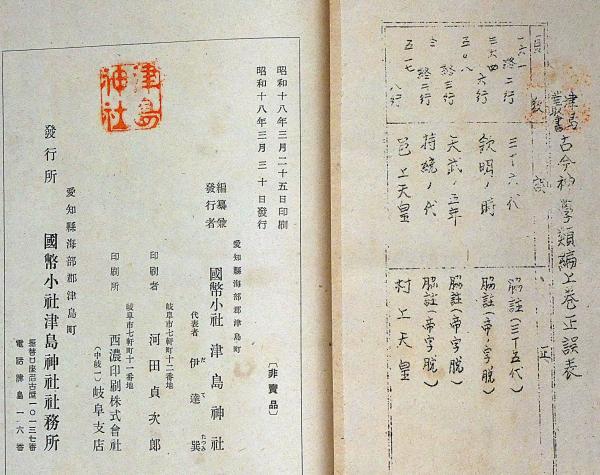 津島叢書 古今神學類編上卷正誤表
頁 數 誤 正
一六一 終二行 三十六代 脇註(三十五代)
三六四 六行 欽明ノ時 脇註(帝字脫)
五〇八 終三行 天武ノ五年 脇註(帝字脫)
終二行 持統ノ代 脇註(帝字脫)
五一七 八行 邑上天皇 村上天皇
〔非賣品〕
昭和十八年三月二十五日印刷
昭和十八年三月三十日發行
愛知縣海部郡津島町
編纂兼發行者 國幣小社 津島神社
代表者 伊達巽
だて たつみ
岐阜市七軒町十二番地
印刷者 河田貞次郎
岐阜市七軒町十一番地
印刷所 西濃印刷株式會社岐阜支店
(中岐一)
愛知縣海部郡津島町
發行所 國幣小社津島神社社務所
振替口座名古屋一〇一三七番
電話津島一六番
津島神社